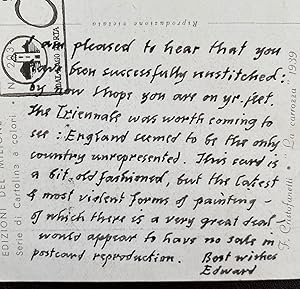 Riproduzione vietata
I am pleased to hear that you
have been successfully unstitched:
by now I hope you are on yr. feet.
The Triennale was worth coming to
see: England seemed to be the only
country unrepresented. This card is
a bit old fashioned, but the latest
& most violent forms of painting -
of which there is a very great deal -
would appear to have no sale in
postcard reproduction.
Best wishes
Edward
EDIZIONI DEL MILION
Serie di Cartoline a colori - N. 203
1939